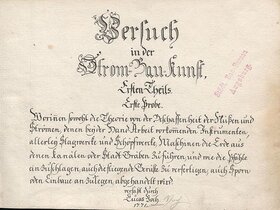 Versuch
in der
Strom-Bau-Kunst,
Ersten Theils.
Erste Probe.
Worinen sowohl die Theorie von der Beschaffenheit der Flüßen und
Stromen, denen bey der Hand Arbeit vorkomenden Instrumenten,
allerley Slagwercke und Schöpfwercke, Maschinen die Erde aus
denen Kanälen oder Stadt Gräben zu führen, und wie die Pfähle
einzuschlagen, auch die fliegende Dersde zu verfertigen, auch Sporn
oder Einbaue anzulegen, abgehandelt wird
verfaßt durch
Lucas Voch
1771.
Augsburg